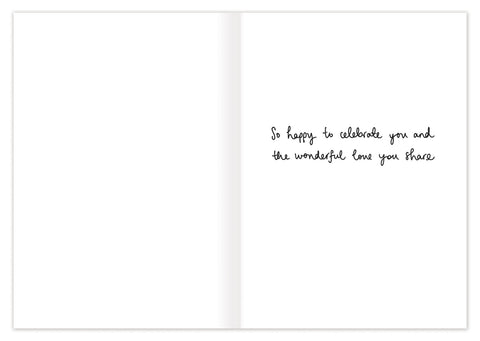 So happy to celebrate you and
the wonderful love you share